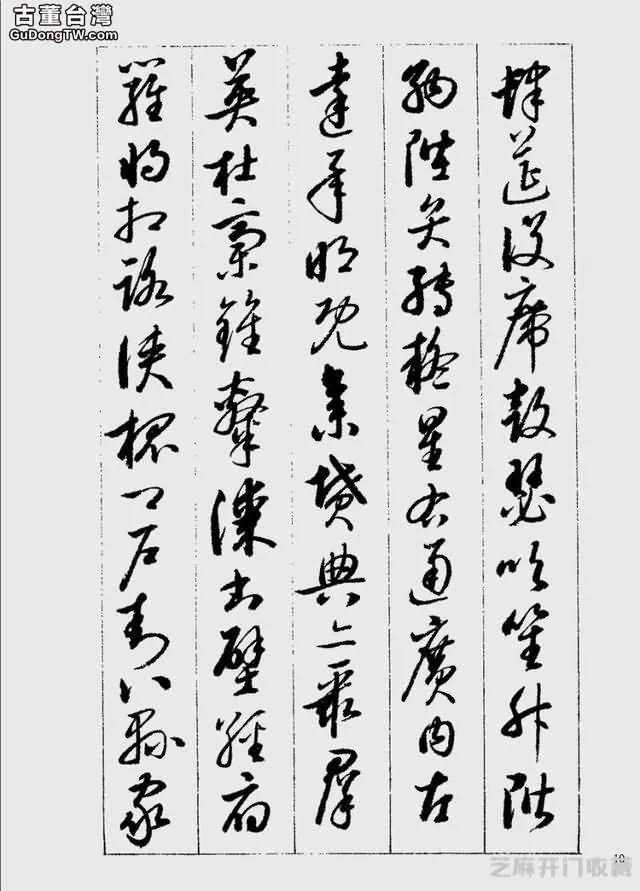 古董台灣
GuDongTW.com
肆筵設席鼓瑟吹笙升階
納陛弁轉疑星右通廣内左
達承明既集墳典亦聚群
英杜稾鍾隸漆書壁經府
羅將相路俠槐卿戶封八縣家
10
芝麻开门收藏